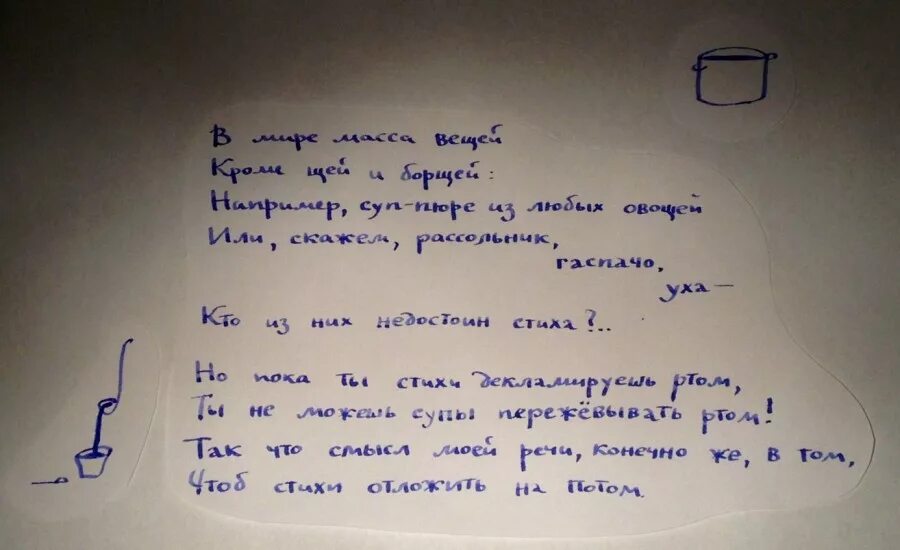 В мире масса вещей
Кроме щей и борщей:
Например, суп-пюре из любых овощей
Или, скажем, рассольник,
гаспачо,
уха—
Кто из них недостоин стиха?..
Но пока ты стихи декламируешь ртом,
Ты не можешь супы пережёвывать ртом!
Так что смысл моей речи, конечно же, в том,
Чтоб стихи отложить на потом.